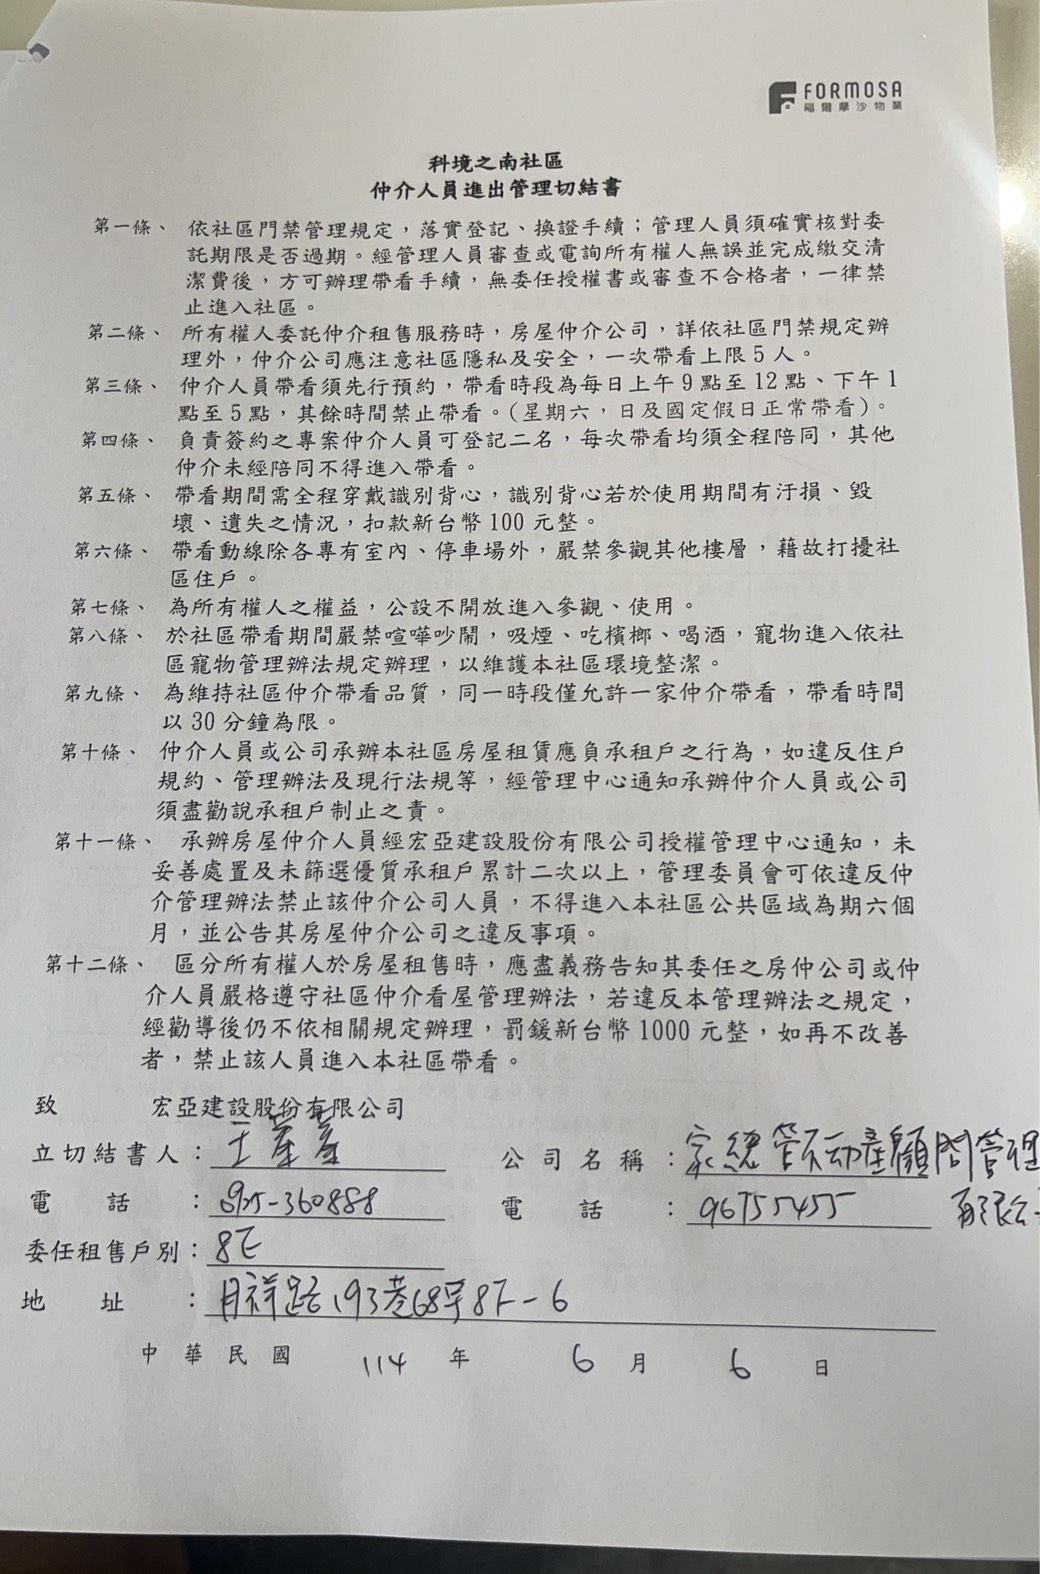 FORMOSA
福爾摩沙物業
科境之南社區
仲介人員進出管理切結書
第一條、 依社區門禁管理規定，落實登記、換證手續；管理人員須確實核對委
託期限是否過期。經管理人員審查或電詢所有權人無誤並完成繳交清
潔費後，方可辦理帶看手續，無委任授權書或審查不合格者，一律禁
止進入社區。
第二條、 所有權人委託仲介租售服務時，房屋仲介公司，詳依社區門禁規定辦
理外，仲介公司應注意社區隱私及安全，一次帶看上限5人。
第三條、 仲介人員帶看須先行預約，帶看時段為每日上午9點至12點、下午1
點至5點，其餘時間禁止帶看。(星期六，日及國定假日正常帶看)。
第四條、 負責簽約之專案仲介人員可登記二名，每次帶看均須全程陪同，其他
仲介未經陪同不得進入帶看。
第五條、 帶看期間需全程穿戴識別背心，識別背心若於使用期間有汙損、毀
壞、遺失之情況，扣款新台幣100元整。
第六條、 帶看動線除各專有室內、停車場外，嚴禁參觀其他樓層，藉故打擾社
區住戶。
第七條、 為所有權人之權益，公設不開放進入參觀、使用。
第八條、 於社區帶看期間嚴禁喧嘩吵鬧，吸煙、吃檳榔、喝酒，寵物進入依社
區寵物管理辦法規定辦理，以維護本社區環境整潔。
第九條、 為維持社區仲介帶看品質，同一時段僅允許一家仲介帶看，帶看時間
以30分鐘為限。
第十條、 仲介人員或公司承辦本社區房屋租賃應負承租戶之行為，如違反住戶
規約、管理辦法及現行法規等，經管理中心通知承辦仲介人員或公司
須盡勸說承租戶制止之責。
第十一條、 承辦房屋仲介人員經宏亞建設股份有限公司授權管理中心通知，未
妥善處置及未篩選優質承租戶累計二次以上，管理委員會可依違反仲
介管理辦法禁止該仲介公司人員，不得進入本社區公共區域為期六個
月，並公告其房屋仲介公司之違反事項。
第十二條、 區分所有權人於房屋租售時，應盡義務告知其委任之房仲公司或仲
介人員嚴格遵守社區仲介看屋管理辦法，若違反本管理辦法之規定，
經勸導後仍不依相關規定辦理，罰鍰新台幣1000元整，如再不改善
者，禁止該人員進入本社區帶看。
致 宏亞建設股份有限公司
立切結書人： 王 公司名稱：家總管不動產顧問管理
電話： -360888 電話：96755455 有限公
委任租售戶別：8F
地址： 路193巷68號8F-6
中華民國 114 年 6 月 6 日